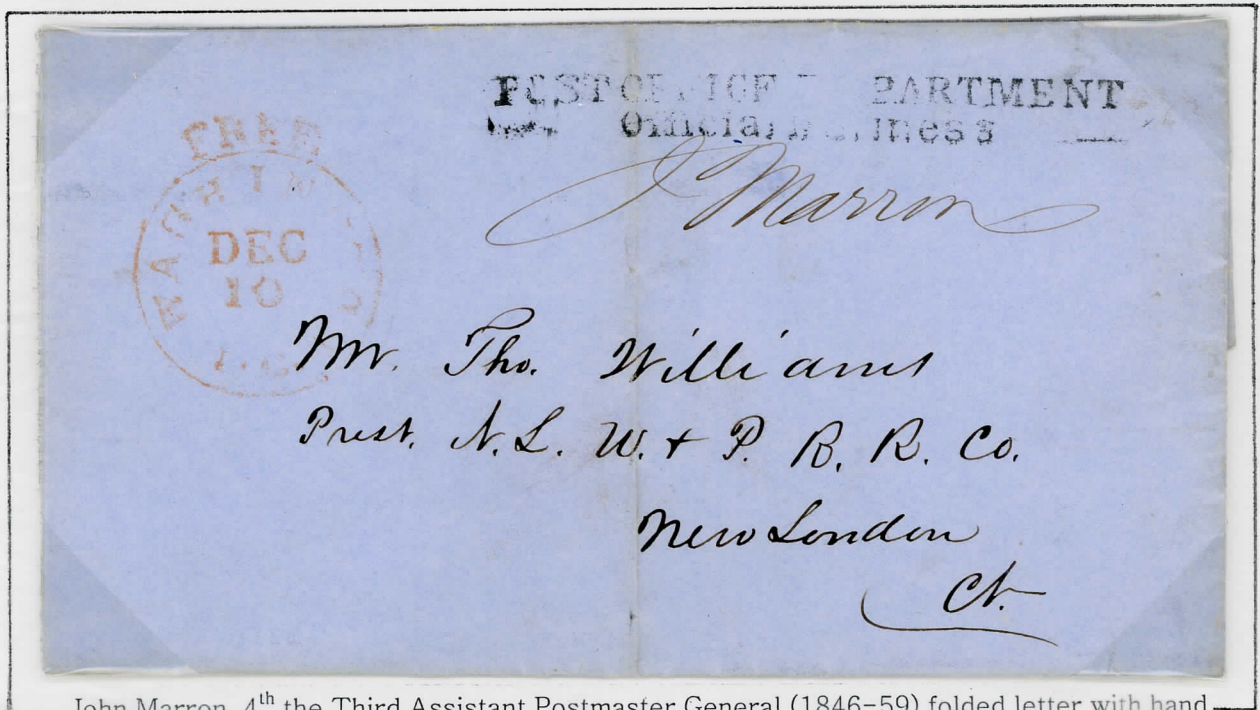 POST OFFICE DEPARTMENT
Official Business
FREE
WASHINGTON
DEC
10
D.C.
J Marron
Mr. Tho. Williams
Prest. N. L. W. & P. R. R. Co.
New London
Ct.
John Marron, 4th the Third Assistant Postmaster General (1846-59) folded letter with hand